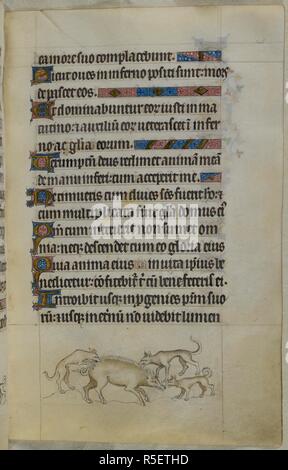 ea in ore suo complacebunt.
Sicut oues in inferno positi sunt: mors
depascet eos.
Et dominabuntur eorum iusti in ma
tutino: et auxilium eorum ueterascet in infer
no a gloria eorum.
deus redimet animam meam
de manu inferi: cum acceperit me.
Ne timueris cum diues
cum multiplicata fuerit gloria domus eius
cum interierit non sumet om
nia: neque descendet cum eo gloria eius
Quia anima eius in uita ipsius be
nedicetur: confitebitur tibi cum benefeceris ei.
Introibit usque in progenies patrum suo
rum: et usque in eternum non uidebit lumen
alamy
alamy
Image ID: R5ETHD
www.alamy.com